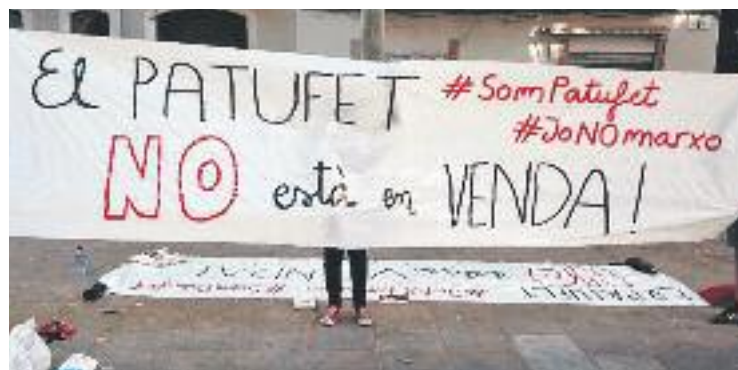 El PATUFET #SomPatufet
#JoNOmarxo
NO està en VENDA!